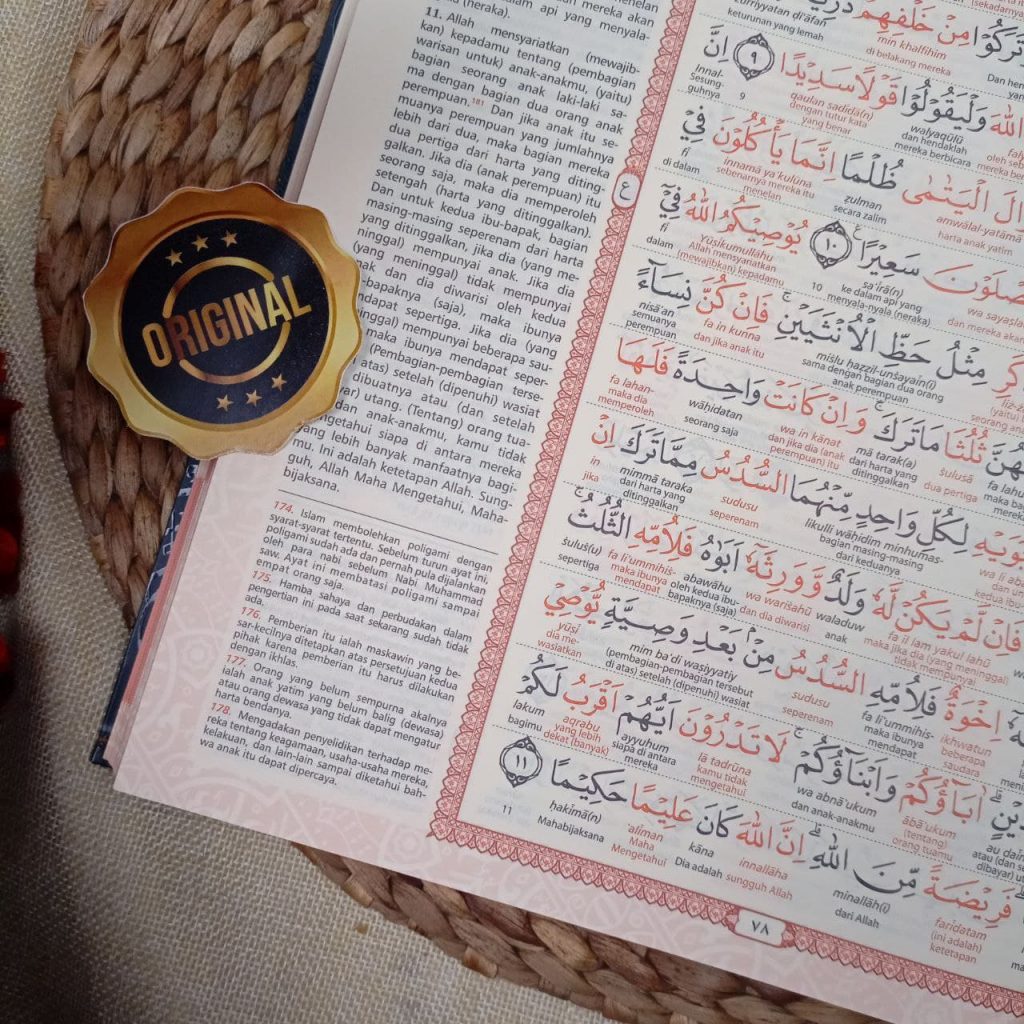 (neraka).
11. Allah mensyariatkan (mewajib-
kan) kepadamu tentang (pembagian
warisan untuk) anak-anakmu, (yaitu)
bagian seorang anak laki-laki sa-
ma dengan bagian dua orang anak
perempuan.181 Dan jika anak itu se-
muanya perempuan yang jumlahnya
lebih dari dua, maka bagian mereka
dua pertiga dari harta yang diting-
galkan. Jika dia (anak perempuan) itu
seorang saja, maka dia memperoleh
setengah (harta yang ditinggalkan).
Dan untuk kedua ibu-bapak, bagian
masing-masing seperenam dari harta
yang ditinggalkan, jika dia (yang me-
ninggal) mempunyai anak. Jika dia
(yang meninggal) tidak mempunyai
dan dia diwarisi oleh kedua
-bapaknya (saja), maka ibunya
sepertiga. Jika dia (yang
mempunyai beberapa sau-
maka ibunya mendapat seper-
(Pembagian-pembagian terse-
atas) setelah (dipenuhi) wasiat
dibuatnya atau (dan setelah
utang. (Tentang) orang tua-
dan anak-anakmu, kamu tidak
mengetahui siapa di antara mereka
yang lebih banyak manfaatnya bagi-
mu. Ini adalah ketetapan Allah. Sung-
guh, Allah Maha Mengetahui, Maha-
bijaksana.
ORIGINAL
174. Islam membolehkan poligami dengan
syarat-syarat tertentu. Sebelum turun ayat ini,
poligami sudah ada dan pernah pula dijalankan
oleh para nabi sebelum Nabi Muhammad
saw. Ayat ini membatasi poligami sampai
empat orang saja.
175. Hamba sahaya dan perbudakan dalam
pengertian ini pada saat sekarang sudah tidak
ada.
176. Pemberian itu ialah maskawin yang be-
sar-kecilnya ditetapkan atas persetujuan kedua
pihak karena pemberian itu harus dilakukan
dengan ikhlas.
177. Orang yang belum sempurna akalnya
ialah anak yatim yang belum balig (dewasa)
atau orang dewasa yang tidak dapat mengatur
harta bendanya.
178. Mengadakan penyelidikan terhadap me-
reka tentang keagamaan, usaha-usaha mereka,
kelakuan, dan lain-lain sampai diketahui bah-
wa anak itu dapat dipercaya.
مِنْ خَلْفِهِمْ
min khalfihim
di belakang mereka
اللّٰهَ وَلْيَقُوْلُوْا قَوْلًا سَدِيْدًا ٩ اِنَّ
walyaqūlū qaulan sadīdā(n) Innal-
dan hendaklah dengan tutur kata Sesung-
mereka berbicara yang benar 9 guhnya
الْيَتٰمٰى ظُلْمًا اِنَّمَا يَأْكُلُوْنَ فِيْ
amwālal-yatāmā ẓulman innamā ya'kulūna fī
harta anak yatim secara zalim sebenarnya mereka itu di dalam
menelan
ع
سَعِيْرًا ١٠ يُوْصِيْكُمُ اللّٰهُ فِيْٓ
sa'īrā(n) Yūsīkumullāhu fī
ke dalam api yang Allah mensyariatkan dalam
menyala-nyala (neraka) 10 (mewajibkan) kepadamu
مِثْلُ حَظِّ الْاُنْثَيَيْنِ فَاِنْ كُنَّ نِسَاۤءً
mislu ḥaẓẓil-unṡayain(i) fa in kunna nisā'an
sama dengan bagian dua orang dan jika anak itu semuanya
anak perempuan perempuan
ثُلُثَا مَا تَرَكَ وَاِنْ كَانَتْ وَاحِدَةً فَلَهَا
ṡuluṡā mā tarak(a) wa in kānat wāḥidatan fa lahan-
dua pertiga dari harta yang dan jika dia (anak seorang saja maka dia
ditinggalkan perempuan) itu memperoleh
لِكُلِّ وَاحِدٍ مِّنْهُمَا السُّدُسُ مِمَّا تَرَكَ اِنْ
likulli wāḥidim minhumas- sudusu mimmā taraka in
bagian masing-masing seperenam dari harta yang jika
dari keduanya ditinggalkan
فَاِنْ لَّمْ يَكُنْ لَّهٗ وَلَدٌ وَّوَرِثَهٗٓ اَبَوٰهُ فَلِاُمِّهِ الثُّلُثُ
fa il lam yakul lahū waladuw wa wariṡahū abawāhu fa li'ummihiṡ- ṡuluṡ(u)
maka jika dia (yang meninggal) anak dan dia diwarisi oleh kedua ibu- maka ibunya sepertiga
tidak mempunyai bapaknya (saja) mendapat
اِخْوَةٌ فَلِاُمِّهِ السُّدُسُ مِنْۢ بَعْدِ وَصِيَّةٍ يُّوْصِيْ
ikhwatun fa li'ummihis- sudusu mim ba'di waṣiyyatiy yūṣī
beberapa maka ibunya seperenam (pembagian-pembagian tersebut dia me-
saudara mendapat di atas) setelah (dipenuhi) wasiat wasiatkan
اٰبَاۤؤُكُمْ وَاَبْنَاۤؤُكُمْ لَا تَدْرُوْنَ اَيُّهُمْ اَقْرَبُ لَكُمْ
ābā'ukum wa abnā'ukum lā tadrūna ayyuhum aqrabu lakum
(tentang) dan anak-anakmu kamu tidak siapa di antara yang lebih bagimu
orang tuamu mengetahui mereka dekat (banyak)
فَرِيْضَةً مِّنَ اللّٰهِ اِنَّ اللّٰهَ كَانَ عَلِيْمًا حَكِيْمًا ١١
farīḍatam minallāh(i) innallāha kāna 'alīman ḥakīmā(n)
(ini adalah) dari Allah sungguh Allah Dia adalah Maha Mahabijaksana 11
ketetapan Mengetahui
٧٨